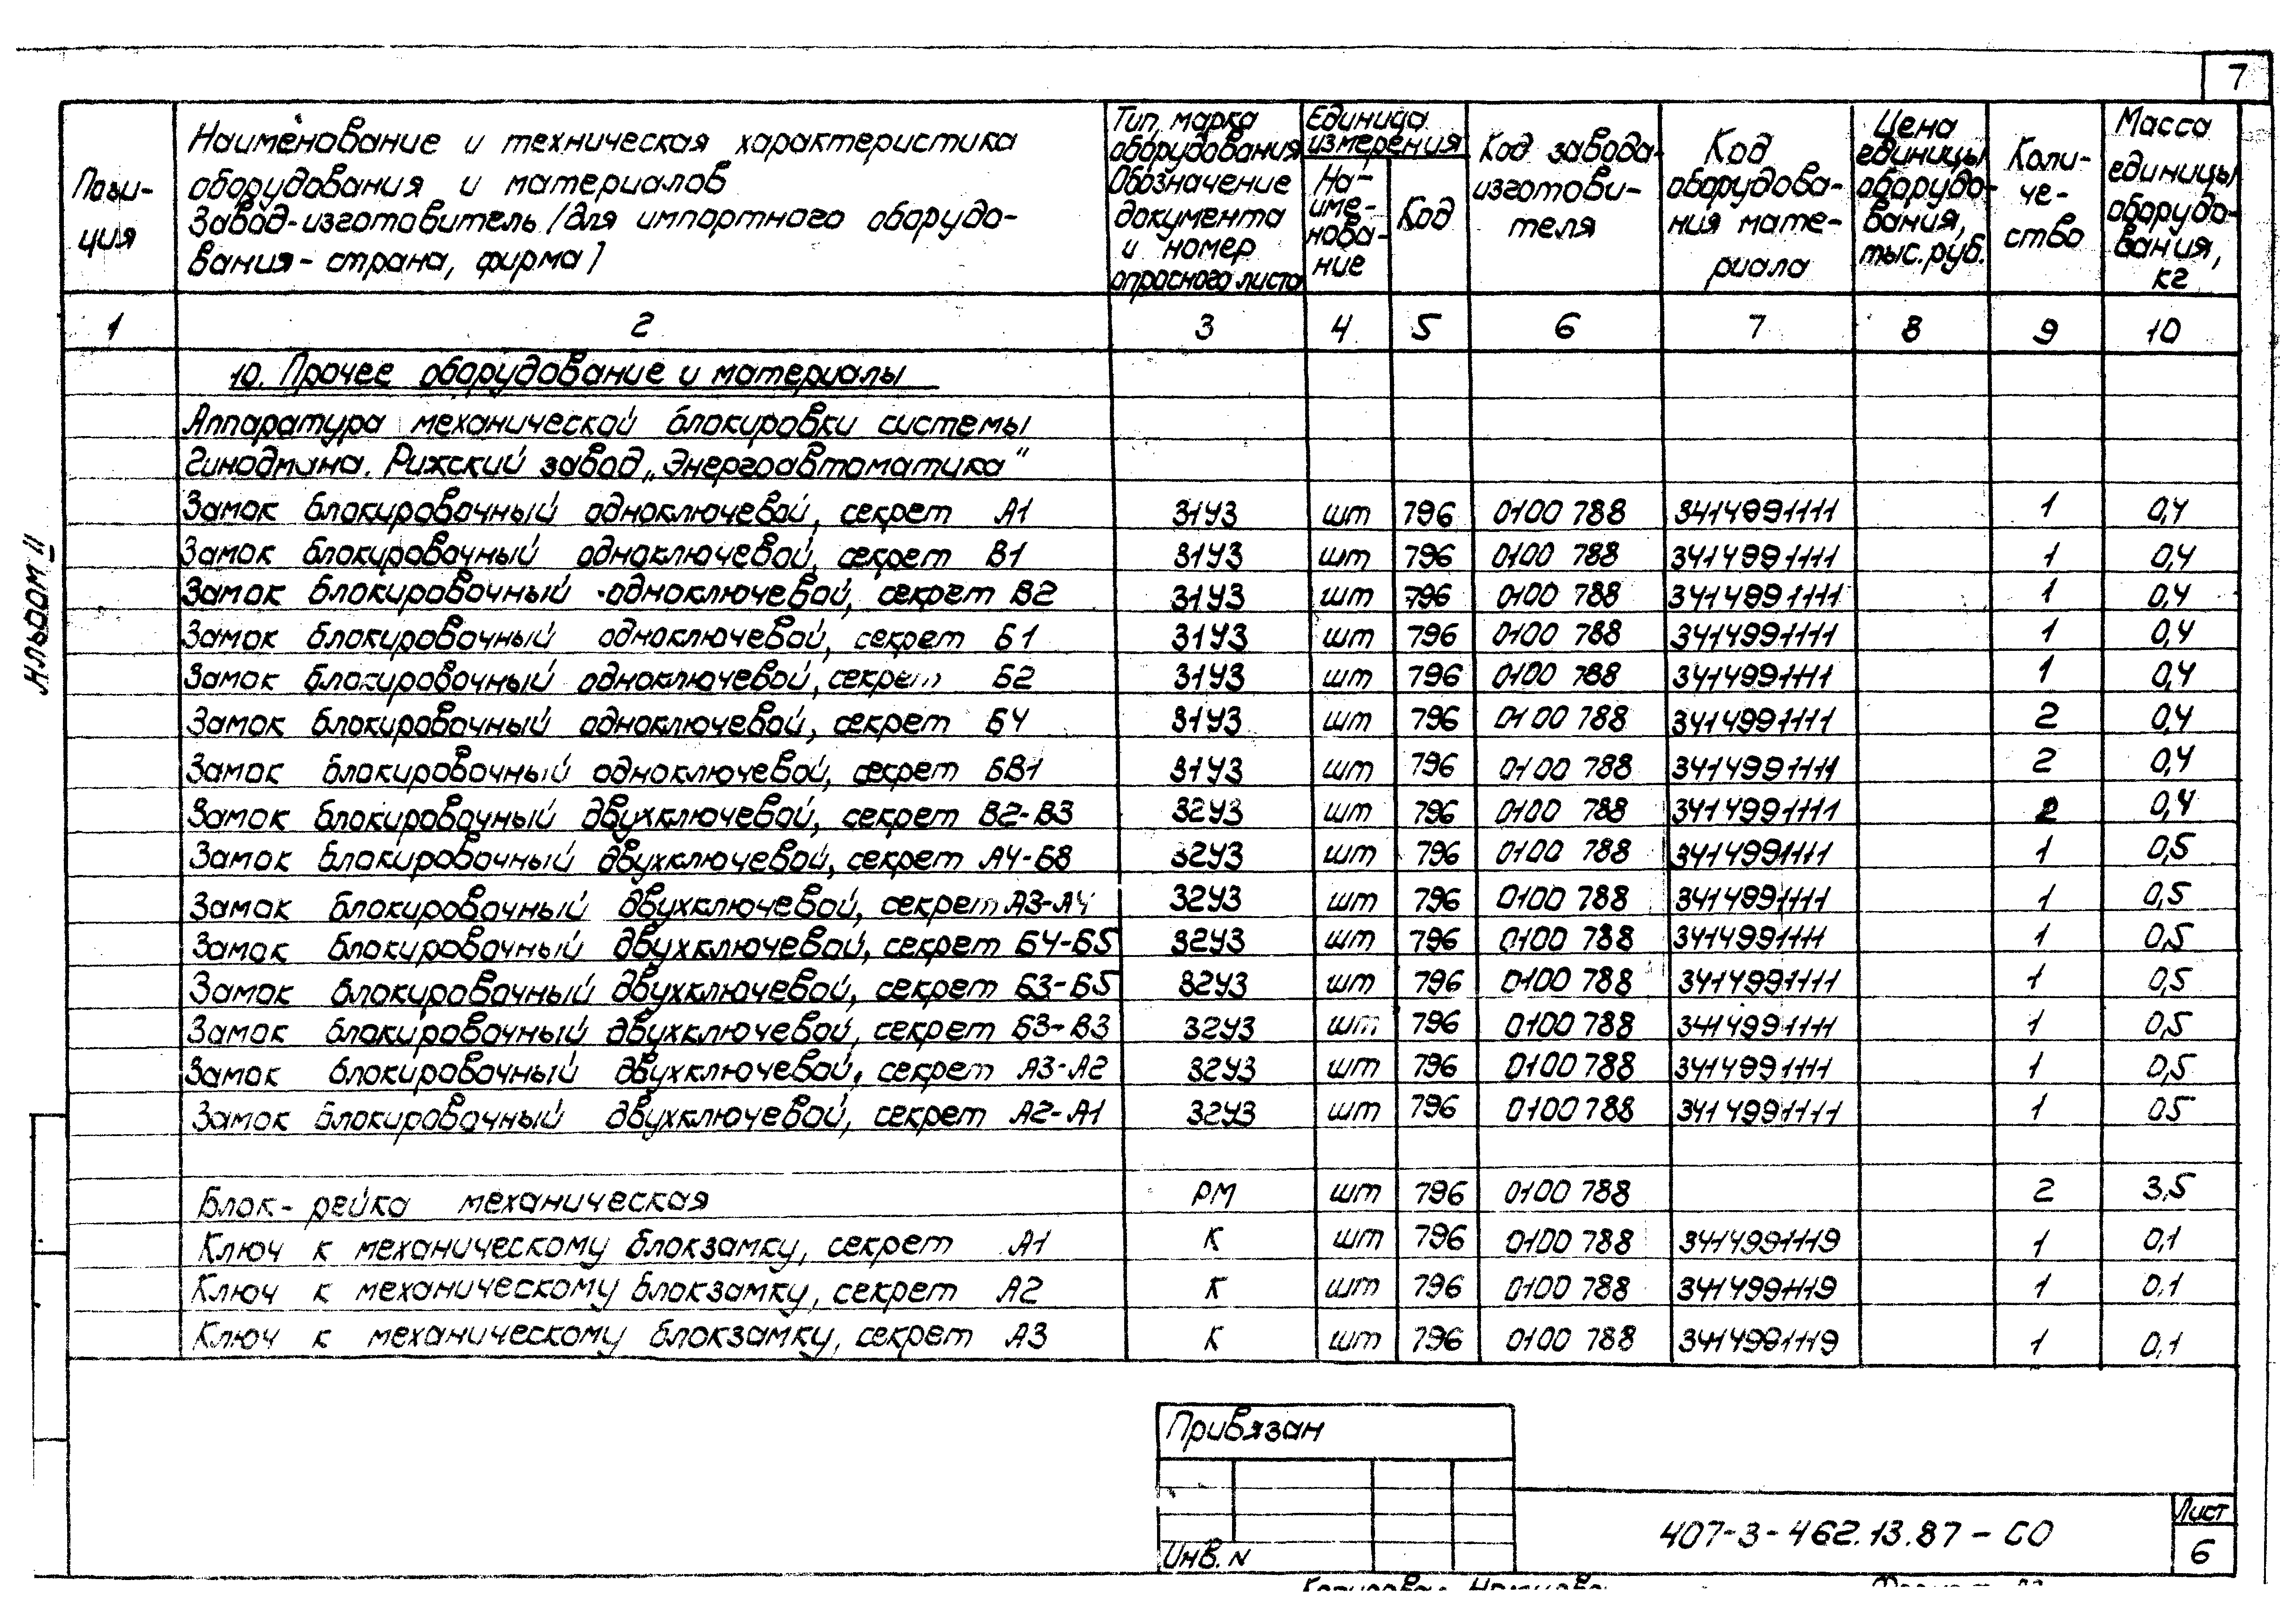 7
Альбом II
Пози-
ция
Наименование и техническая характеристика
оборудования и материалов
Завод-изготовитель /для импортного оборудо-
вания - страна, фирма/
Тип, марка
оборудования
Обозначение
документа
и номер
опросного листа
Единица
измерения
На-
име-
нова-
ние
Код
Код завода-
изготови-
теля
Код
оборудова-
ния мате-
риала
Цена
единицы
оборудо-
вания,
тыс. руб.
Коли-
че-
ство
Масса
единицы
оборудо-
вания,
кг
1 2 3 4 5 6 7 8 9 10
10. Прочее оборудование и материалы
Аппаратура механической блокировки системы
Гинодмана. Рижский завод „Энергоавтоматика"
Замок блокировочный одноключевой, секрет А1 31У3 шт 796 0100 788 3414991111 1 0,4
Замок блокировочный одноключевой, секрет В1 31У3 шт 796 0100 788 3414991111 1 0,4
Замок блокировочный одноключевой, секрет В2 31У3 шт 796 0100 788 3414991111 1 0,4
Замок блокировочный одноключевой, секрет Б1 31У3 шт 796 0100 788 3414991111 1 0,4
Замок блокировочный одноключевой, секрет Б2 31У3 шт 796 0100 788 3414991111 1 0,4
Замок блокировочный одноключевой, секрет Б4 31У3 шт 796 0100 788 3414991111 2 0,4
Замок блокировочный одноключевой, секрет БВ1 31У3 шт 796 0100 788 3414991111 2 0,4
Замок блокировочный двухключевой, секрет В2-В3 32У3 шт 796 0100 788 3414991111 2 0,4
Замок блокировочный двухключевой, секрет А4-Б8 32У3 шт 796 0100 788 3414991111 1 0,5
Замок блокировочный двухключевой, секрет А3-А4 32У3 шт 796 0100 788 3414991111 1 0,5
Замок блокировочный двухключевой, секрет Б4-Б5 32У3 шт 796 0100 788 3414991111 1 0,5
Замок блокировочный двухключевой, секрет Б3-Б5 32У3 шт 796 0100 788 3414991111 1 0,5
Замок блокировочный двухключевой, секрет Б3-В3 32У3 шт 796 0100 788 3414991111 1 0,5
Замок блокировочный двухключевой, секрет А3-А2 32У3 шт 796 0100 788 3414991111 1 0,5
Замок блокировочный двухключевой, секрет А2-А1 32У3 шт 796 0100 788 3414991111 1 05
Блок-рейка механическая РМ шт 796 0100 788 2 3,5
Ключ к механическому блокзамку, секрет А1 К шт 796 0100 788 3414991119 1 0,1
Ключ к механическому блокзамку, секрет А2 К шт 796 0100 788 3414991119 1 0.1
Ключ к механическому блокзамку, секрет А3 К шт 796 0100 788 3414991119 1 0,1
Привязан
Инв. N
407-3-462.13.87-СО
Лист
6